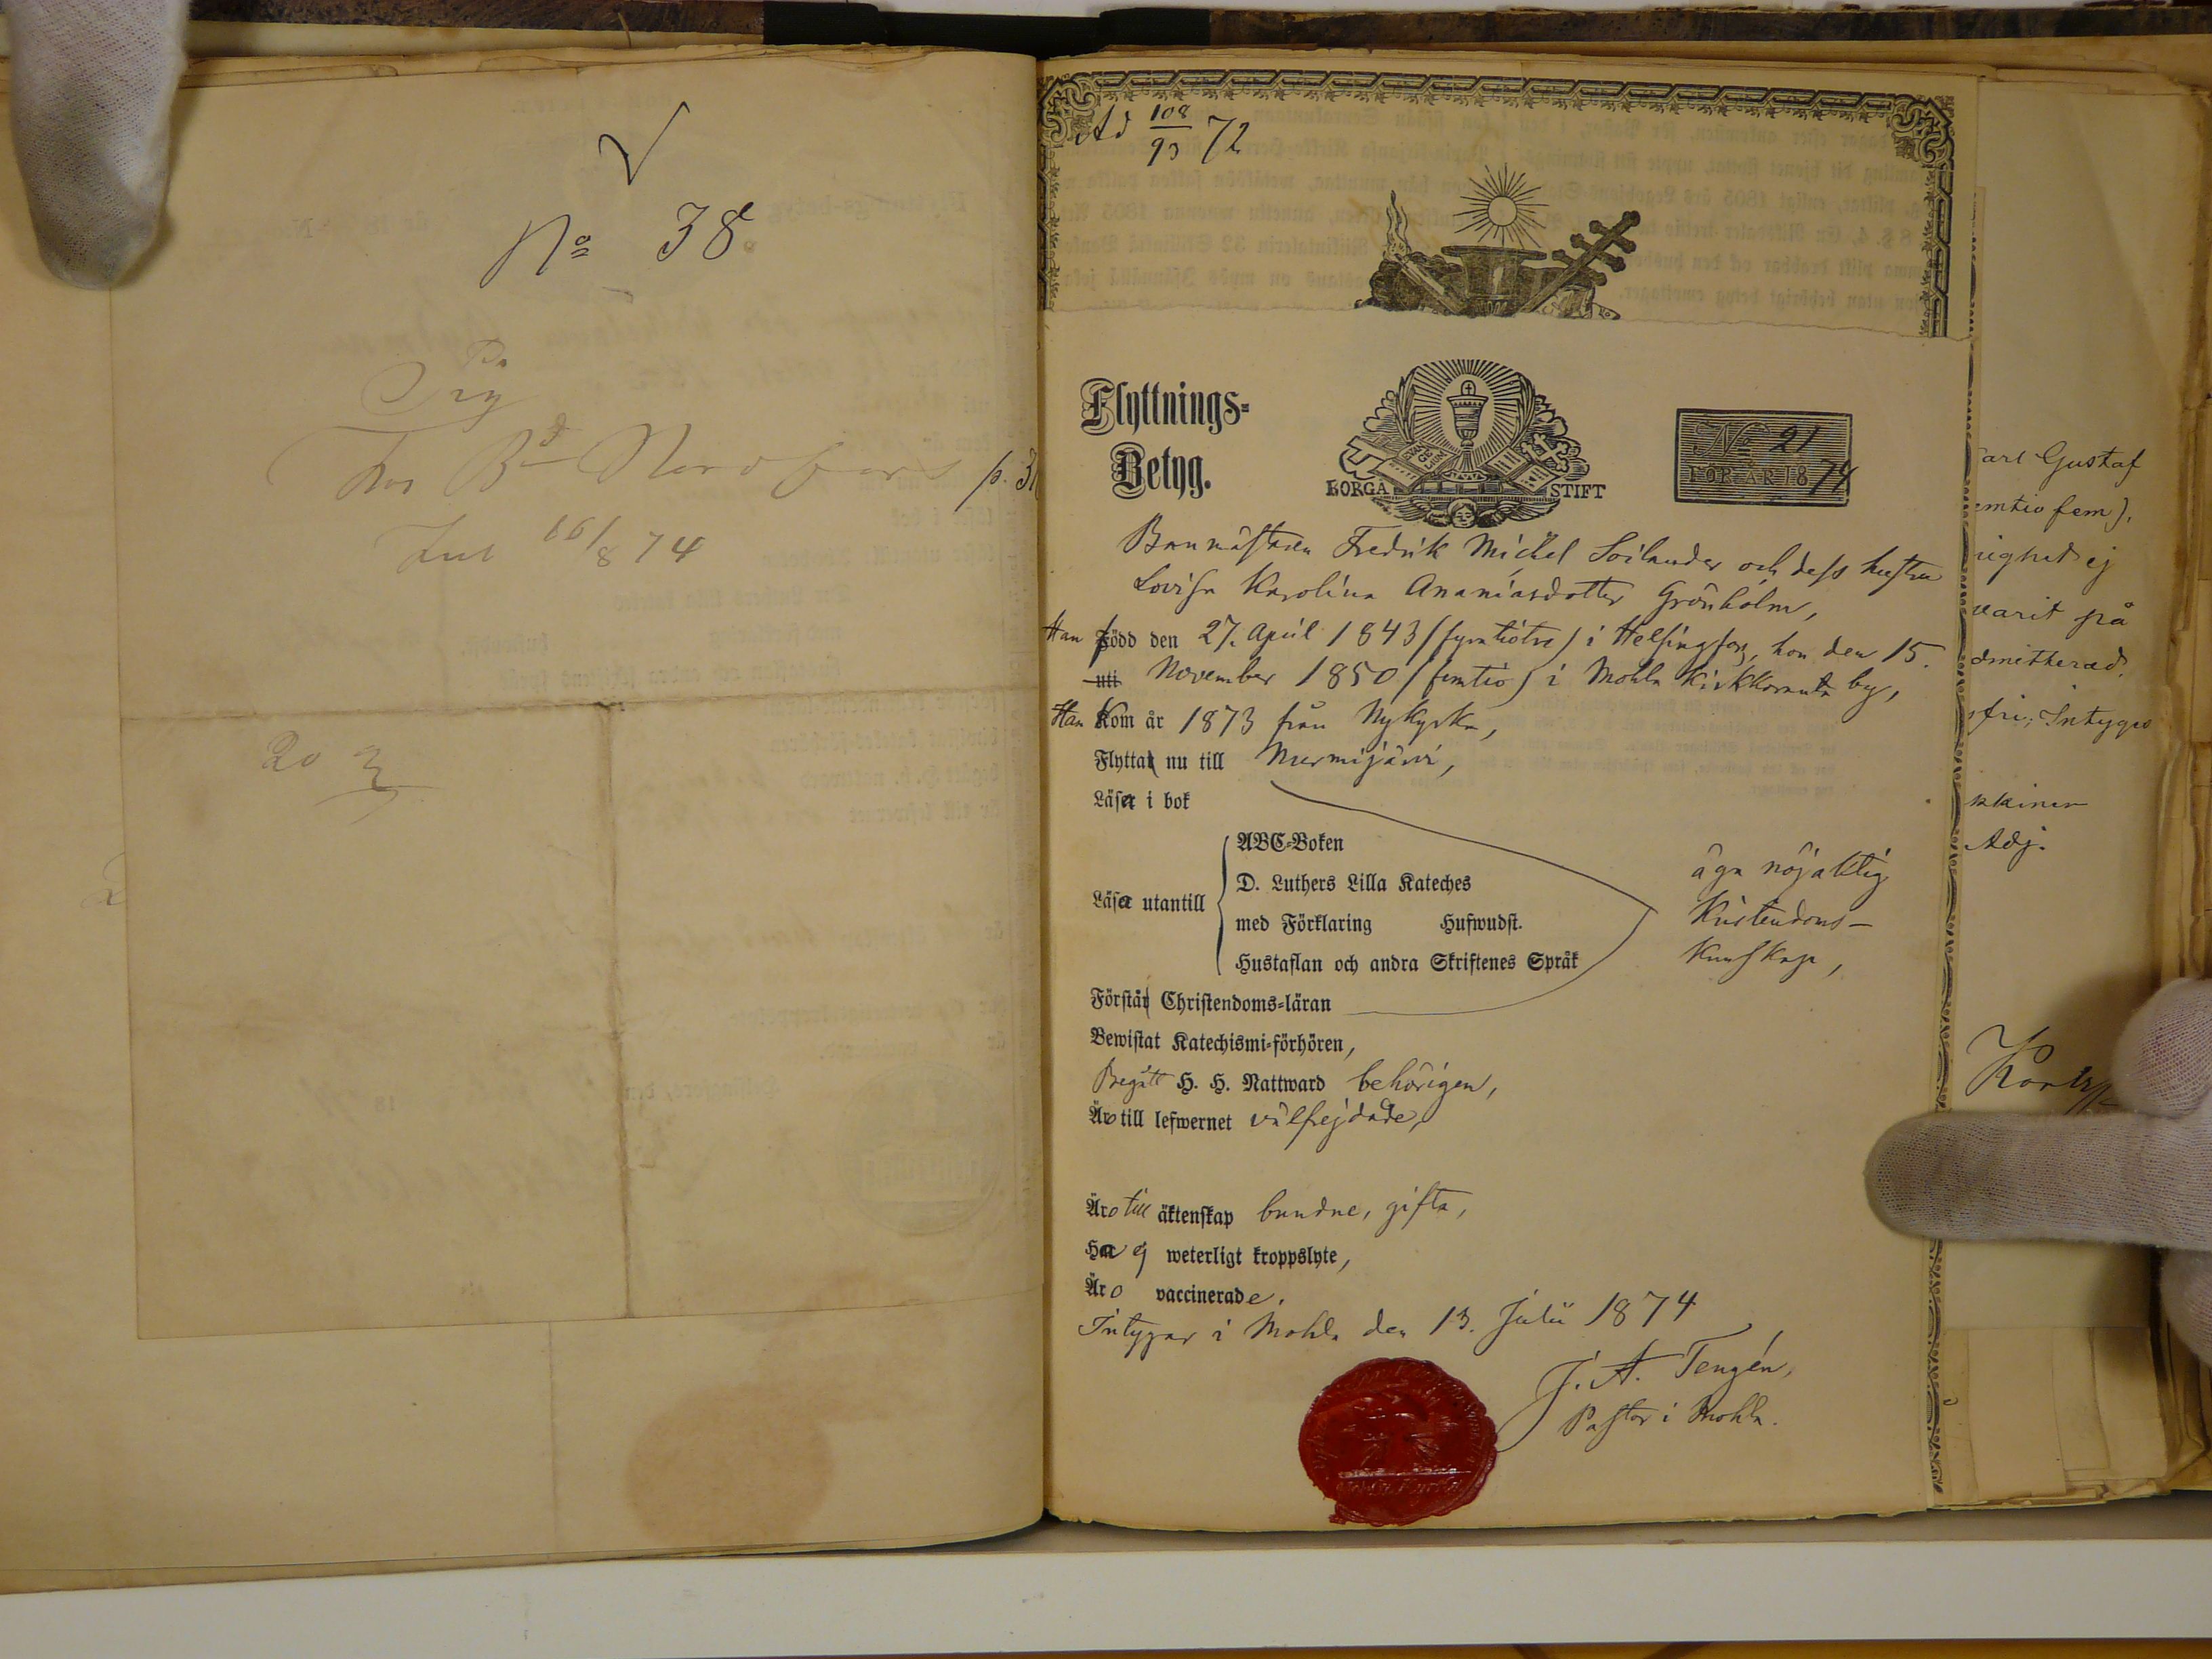 No 38
p. 3
16/8 74
20
Ad 108/93 72
Flyttnings-
Betyg.
EVAN GE LIUM
BORGÅ STIFT
No 21
FÖR ÅR 1874
Banmästaren Fredrik Michel Soilander och dess hustru
Lovisa Karolina Ananiasdotter Grönholm,
Han född den 27. April 1843 (fyratiotre) i Helsingfors, hon den 15.
uti November 1850 (femtio) i Mohla Kirkkoranta by,
Han Kom år 1873 från Nykyrka,
Flytta nu till Nurmijärvi,
Läsa i bok
ABC-Boken
D. Luthers Lilla Kateches
Läsa utantill
med Förklaring Hufwudst.
Hustaflan och andra Skriftenes Språk
äga nöjaktig
Kristendoms-
Kunskap,
Förstå Christendoms-läran
Bewistat Katechismi-förhören,
Begått H. H. Nattward behörigen,
Äro till lefwernet välfrejdade,
Äro till äktenskap bundne, gifta,
Ha ej weterligt kroppslyte,
Äro vaccinerade.
Intygar i Mohla den 13. Julii 1874
J. A. Tengén,
Pastor i Mohla.
Carl Gustaf
emtio fem).
righet ej
varit på
dmitterad.
sfri; Intygas
kkinen
Adj.